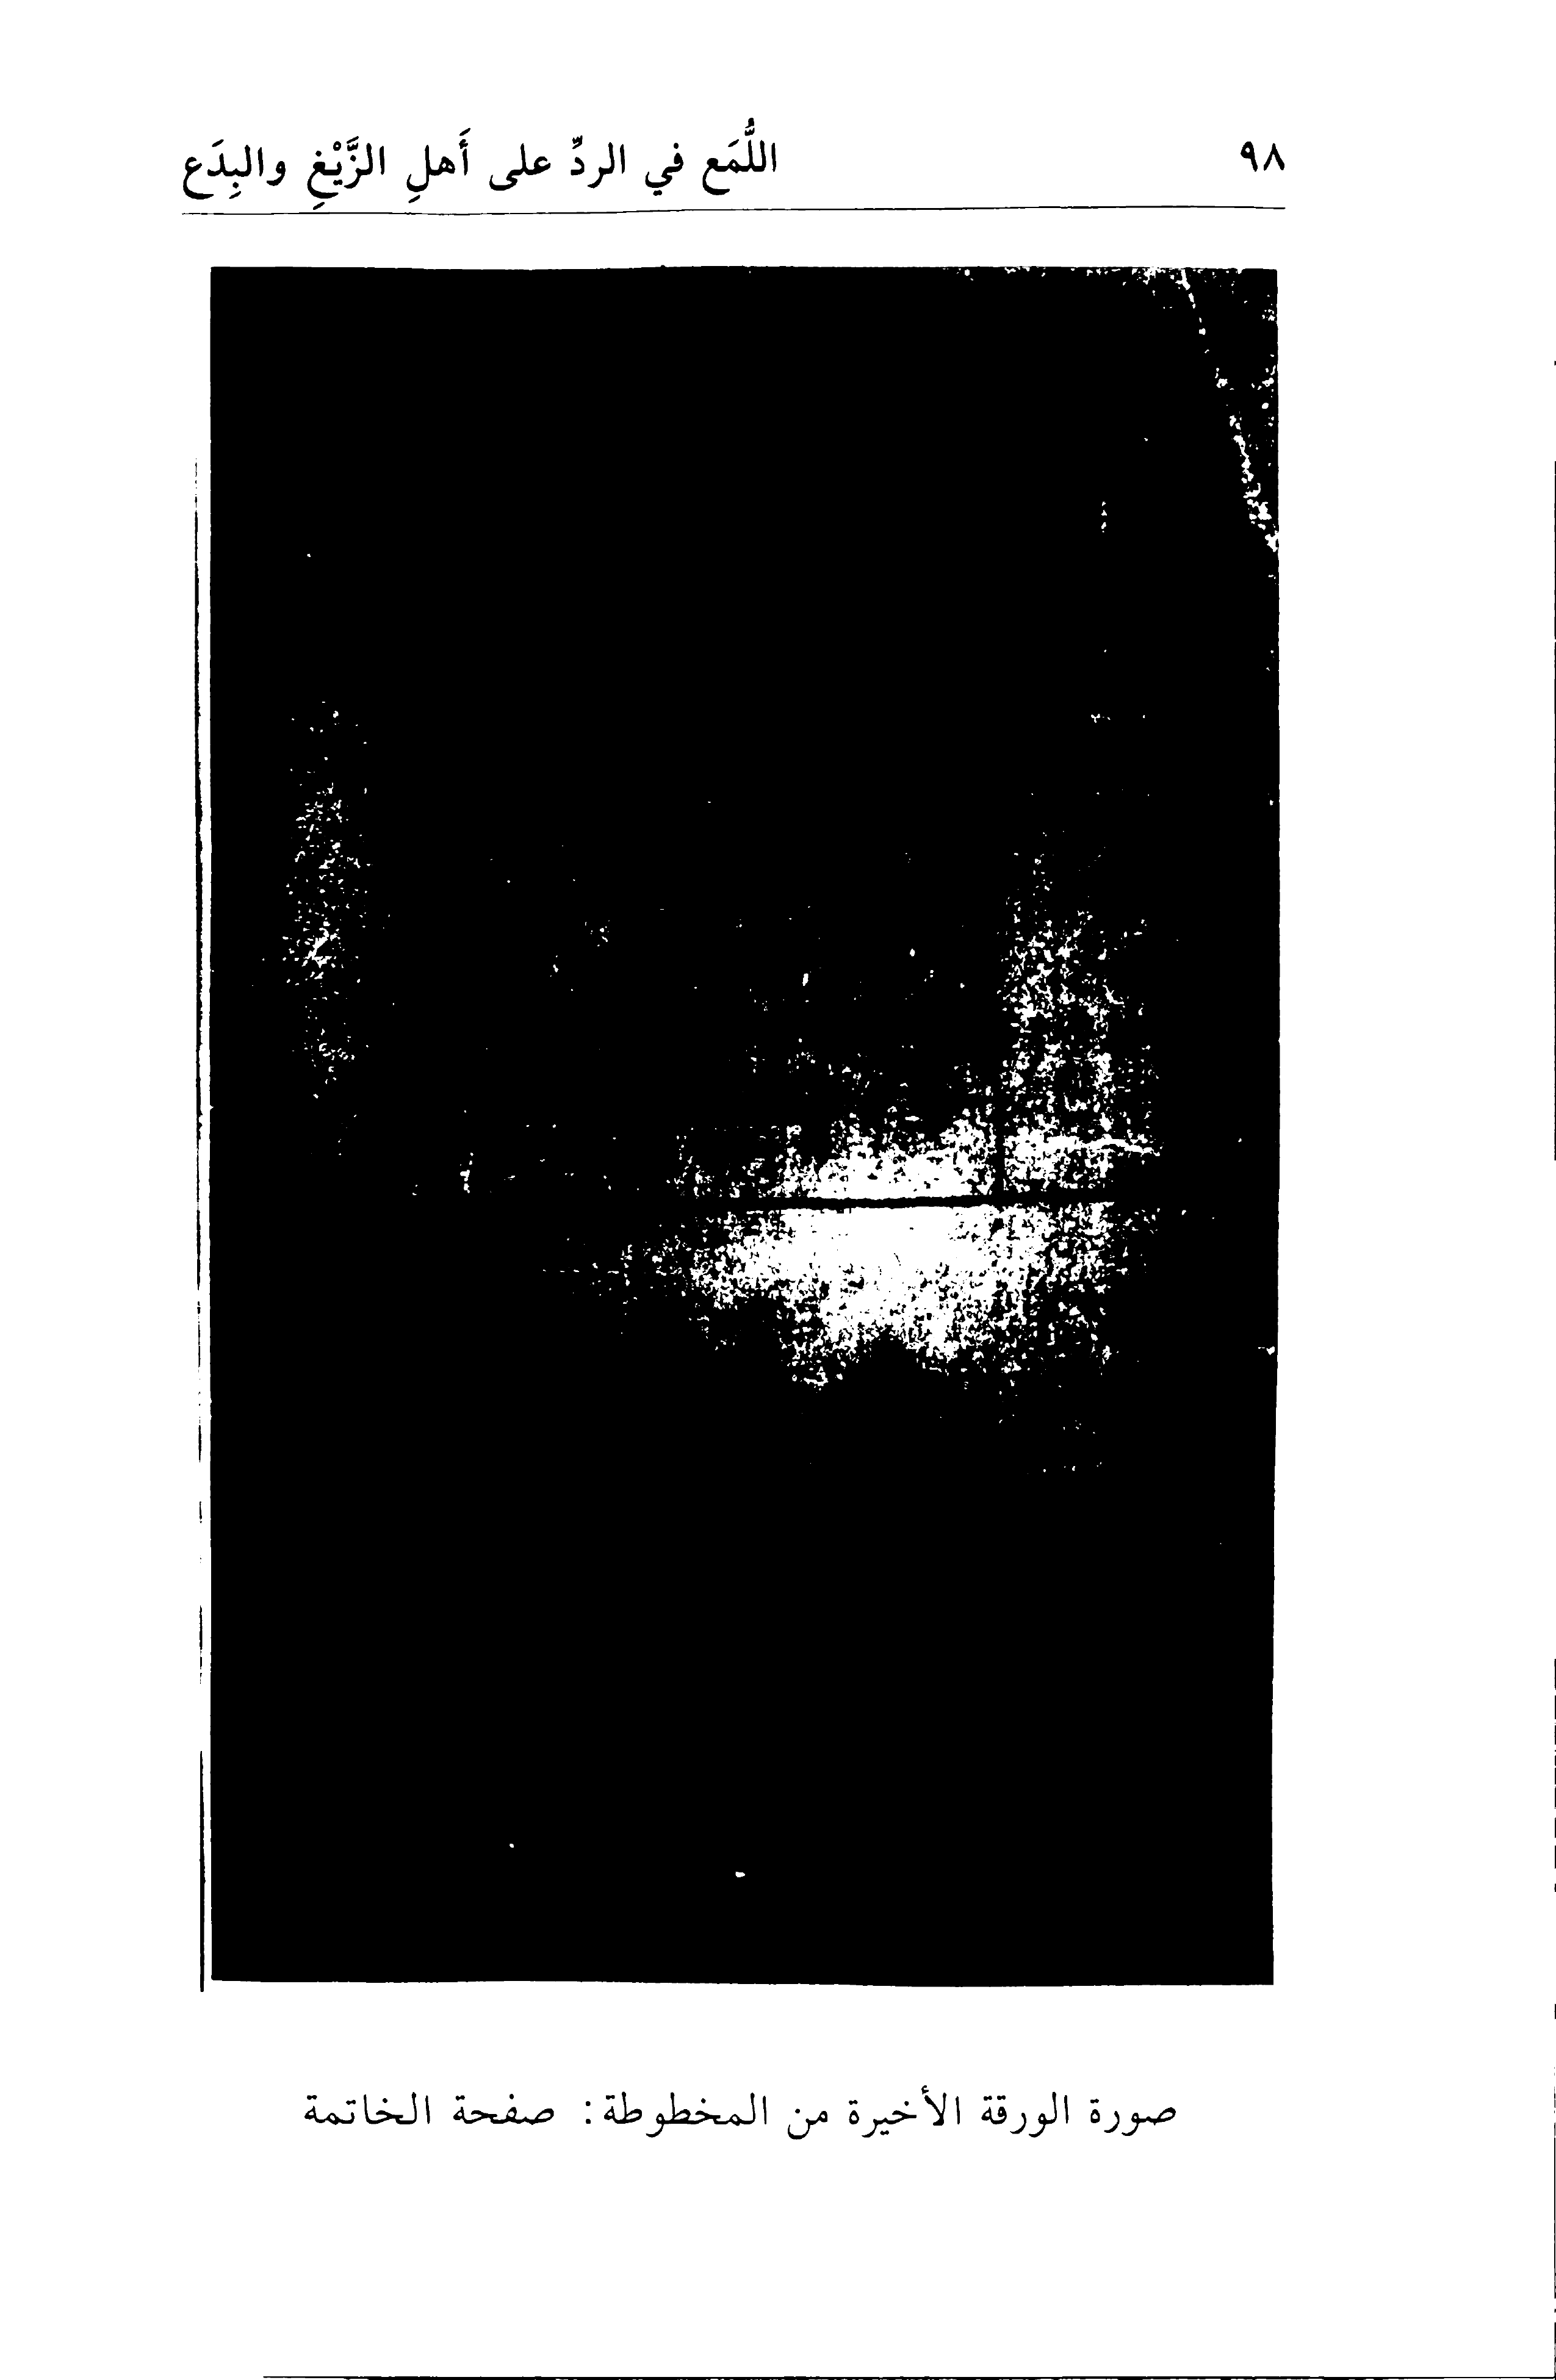 ٩٨
اللُّمَع في الردِّ على أَهلِ الزَّيْغِ والبِدَع
صورة الورقة الأخيرة من المخطوطة: صفحة الخاتمة